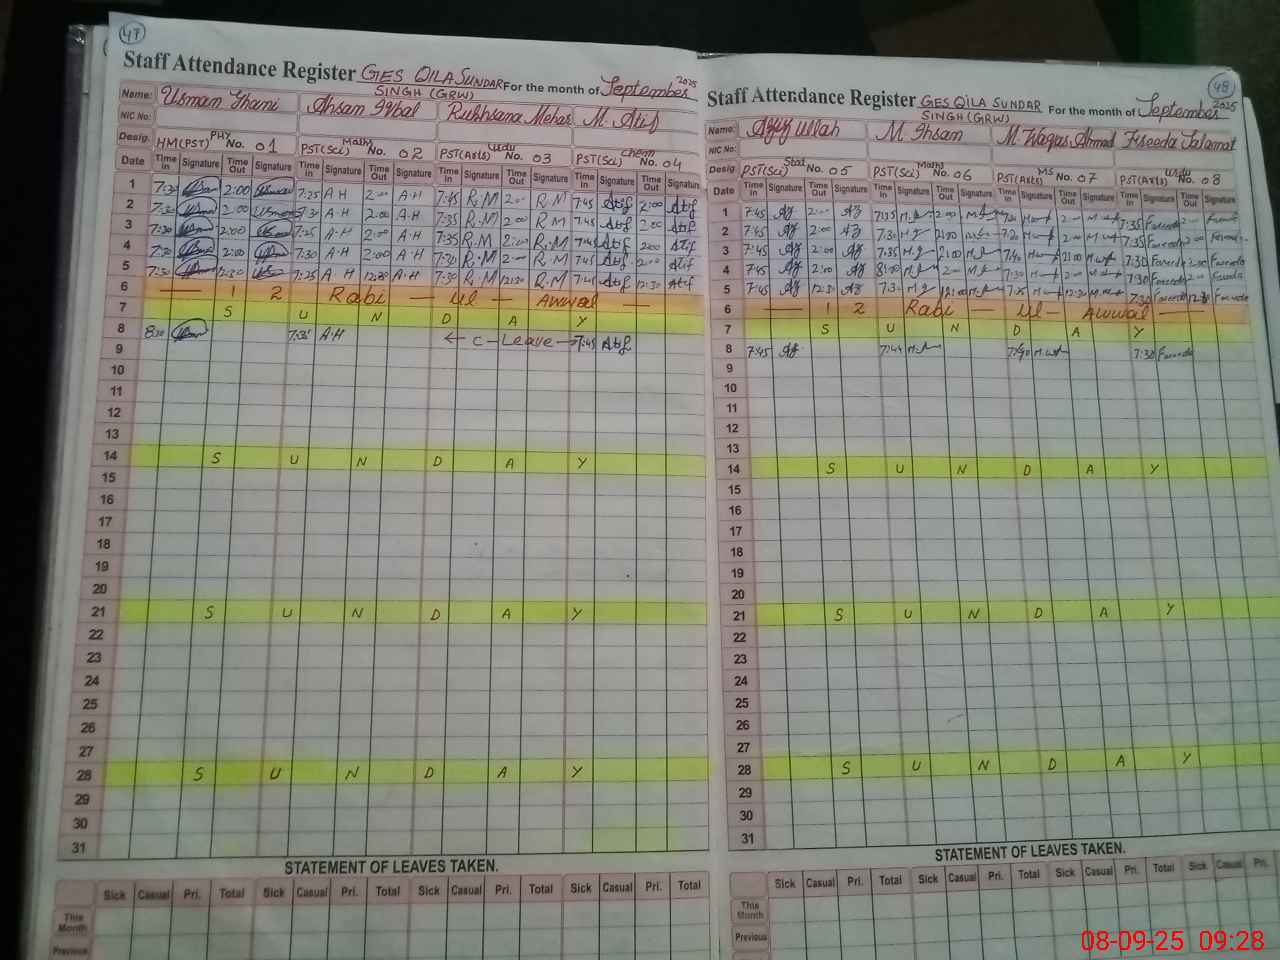 47
Staff Attendance Register GES QILA SUNDAR SINGH (GRW) For the month of September 2025
Name: Usman Ghani Ahsam Iqbal Rukhsana Mehar M. Atif
NIC No:
Desig. HM(PST) PHY No. 01 PST(Sci) Maths No. 02 PST(Arts) Urdu No. 03 PST(Sci) Chem No. 04
Date Time In Signature Time Out Signature Time In Signature Time Out Signature Time In Signature Time Out Signature Time In Signature Time Out Signature
1 7:30 2:00 7:25 A·H 2:00 A·H 7:45 R.M 2:00 R.M 7:45 Atif 2:00 Atif
2 7:30 2:00 7:30 A·H 2:00 A·H 7:35 R.M 2:00 R.M 7:45 Atif 2:00 Atif
3 7:30 2:00 7:25 A·H 2:00 A·H 7:35 R.M 2:00 R.M 7:45 Atif 2:00 Atif
4 7:30 2:00 7:30 A·H 2:00 A·H 7:30 R.M 2:00 R.M 7:45 Atif 2:00 Atif
5 7:30 12:30 7:25 A·H 12:30 A·H 7:30 R.M 12:30 R.M 7:45 Atif 12:30 Atif
6 — 1 2 Rabi — Ul — Awwal —
7 S U N D A Y
8 8:30 7:35 A·H ← C - Leave → 7:45 Atif
9
10
11
12
13
14 S U N D A Y
15
16
17
18
19
20
21 S U N D A Y
22
23
24
25
26
27
28 S U N D A Y
29
30
31
STATEMENT OF LEAVES TAKEN.
Sick Casual Pri. Total Sick Casual Pri. Total Sick Casual Pri. Total Sick Casual Pri. Total
This Month
Previous
48
Staff Attendance Register GES QILA SUNDAR SINGH (GRW) For the month of September 2025
Name: Aziz Ullah M. Ihsam M. Waqas Ahmad Freeda Salamat
NIC No:
Desig. PST(Sci) Stat No. 05 PST(Sci) Maths No. 06 PST(Arts) MS No. 07 PST(Arts) Urdu No. 08
Date Time In Signature Time Out Signature Time In Signature Time Out Signature Time In Signature Time Out Signature Time In Signature Time Out Signature
1 7:45 Az 2:00 Az 2:00 2:00 7:35 2:00
2 7:45 Az 2:00 Az 7:30 2:00 7:30 2:00 7:35 2:00
3 7:45 Az 2:00 Az 7:35 2:00 7:40 2:00 7:30 2:00
4 7:45 Az 2:00 Az 8:00 2:00 7:30 2:00 7:30 2:00
5 7:45 Az 12:30 Az 7:30 12:00 12:30 7:30 12:30
6 — 1 2 Rabi — Ul — Awwal —
7 S U N D A Y
8 7:45 Az 7:44 7:40 7:30
9
10
11
12
13
14 S U N D A Y
15
16
17
18
19
20
21 S U N D A Y
22
23
24
25
26
27
28 S U N D A Y
29
30
31
STATEMENT OF LEAVES TAKEN.
Sick Casual Pri. Total Sick Casual Pri. Total Sick Casual Pri. Total Sick Casual Pri.
This Month
Previous
08-09-25 09:28